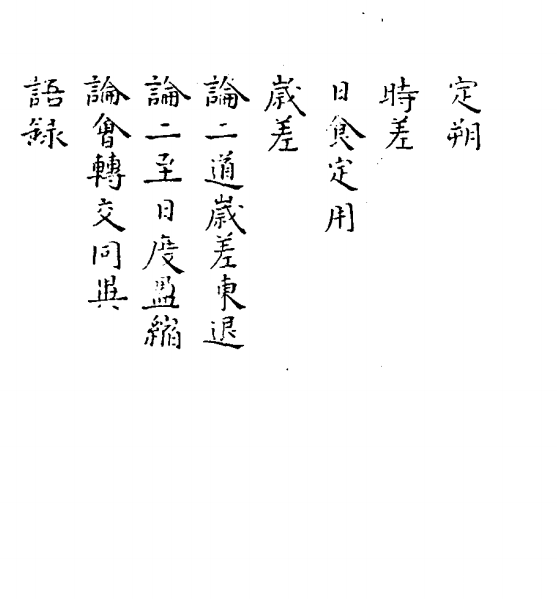 定朔
時差
日食定用
歳差
論二道歳差東退
論二至日度盈縮
論會轉交同異
語録